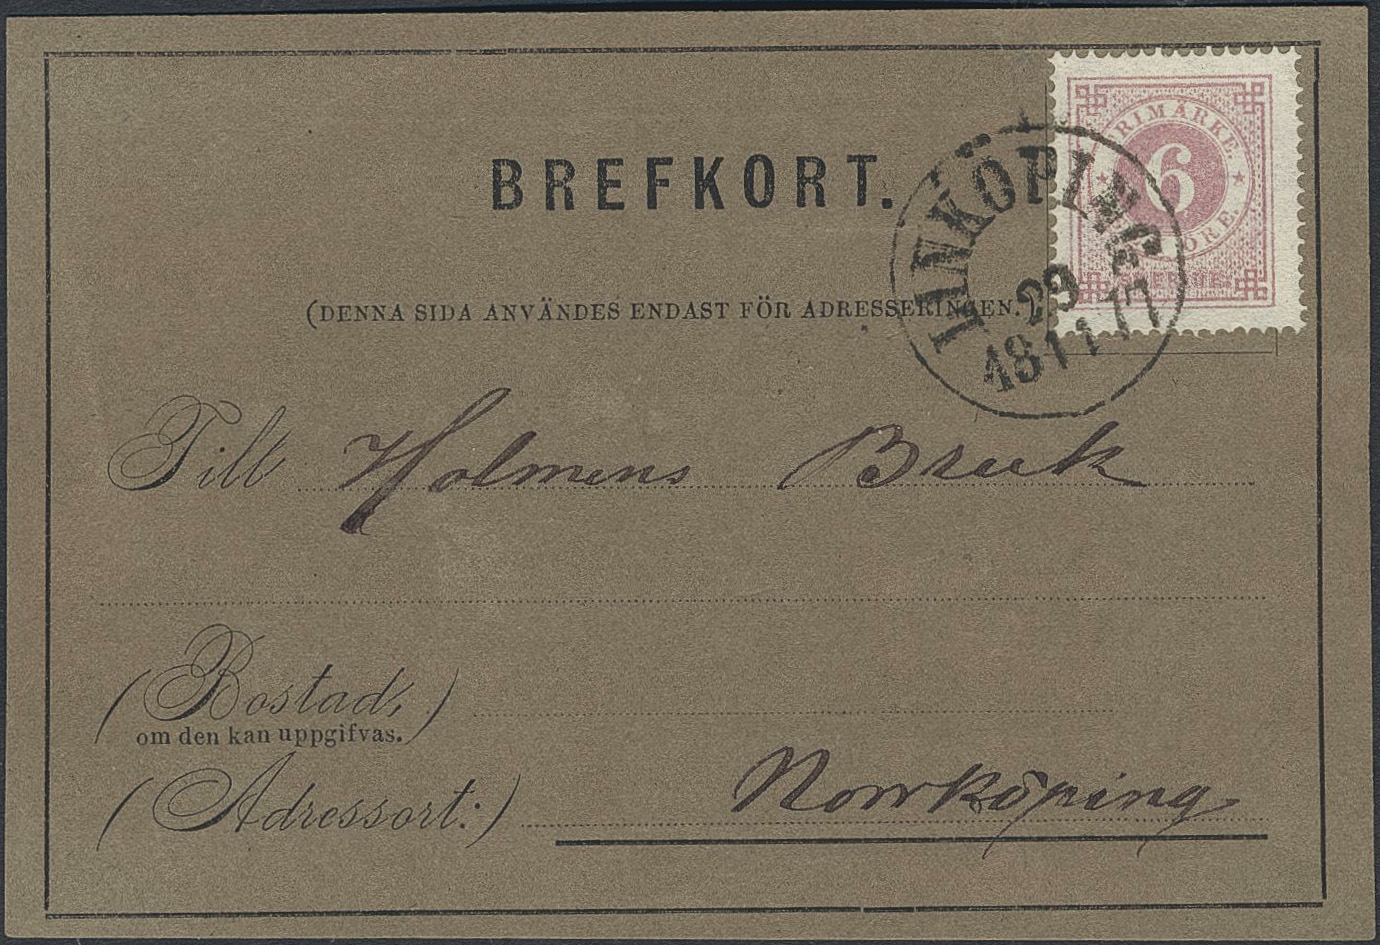 BREFKORT.
(DENNA SIDA ANVÄNDES ENDAST FÖR ADRESSERINGEN.)
FRIMÄRKE
6
ÖRE.
SVERIGE.
LINKÖPING
29
18 11 77
Till Holmens Bruk
(Bostad,)
om den kan uppgifvas.
(Adressort:) Norrköping